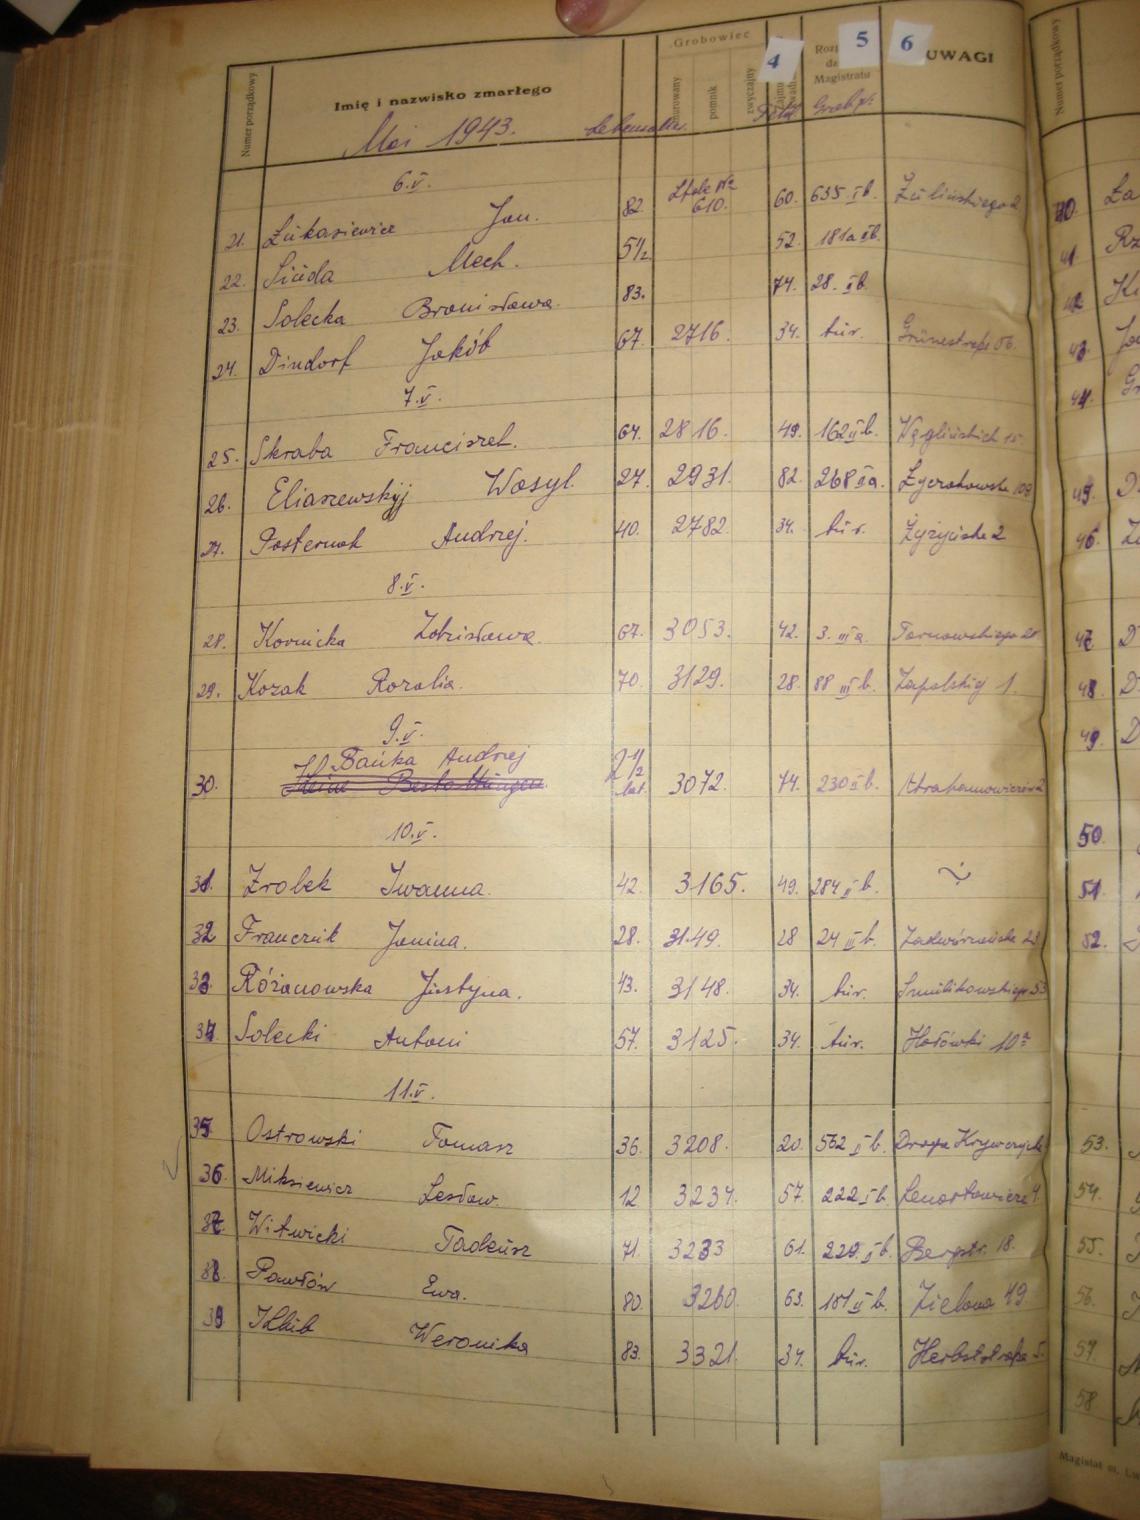 Numer porządkowy Imię i nazwisko zmarłego Grobowiec murowany pomnik zwyczajny 4 5 6 UWAGI
Magistratu
Mai 1943. Feld Grab
6.V.
21. Łukasiewicz Jan. 82. 610. 60. 635 I b. Żulińskiego 2
22. Siuda Mech. 5 1/2 52. 181a II b.
23. Solecka Bronisława. 83. 74. 28. II b.
24. Dindorf Jakób 67. 2716. 34. tur. 56.
7.V.
25. Skraba Franciszek. 64. 2816. 49. 162 II b. Węglińskich 15.
26. Eliaszewskyj Wasyl. 27. 2931. 82. 268 II a. Łyczakowska 109
27. Posternak Andrzej. 40. 2782. 34. tur. Żyżyńska 2
8.V.
28. Kornicka Zdzisława. 67. 3053. 42. 3. III a. Tarnowskiego
29. Kozak Rozalia. 70. 3129. 28. 88 III b. Zapolskiej 1.
9.V.
Bańka Andrzej
30. Keine Bestattungen. 2 1/2 lat. 3072. 74. 230 II b. Abrahamowiczów 2
10.V.
31. Zrobek Iwanna. 42. 3165. 49. 284 II b. ?
32 Franczuk Janina. 28. 3149. 28 24 III b. Zadwórzańska 23
33. Różanowska Justyna. 43. 3148. 34. tur. Smulikowskiego 53
34. Solecki Antoni 57. 3125. 34. tur. Hołówki 10a
11.V.
35 Ostrowski Tomasz 36. 3208. 20. 562 I b. Droga Krywczycka
36. Miksiewicz Lesław. 12 3234. 57. 222 I b. Lenartowicza 4.
37. Witwicki Tadeusz 71. 3233 61. 229. I b. Bergstr. 18.
38. Pawłów Ewa. 80. 3260. 63. 181 II b. Zielona 49.
39. Weronika 83. 3321. 34. tur. Herbststrasse 5.
Numer porządkowy
40.
41.
42
43.
44.
45.
46.
47
48.
49.
50.
51.
52.
53.
54.
55.
56.
57.
58
Magistrat m.